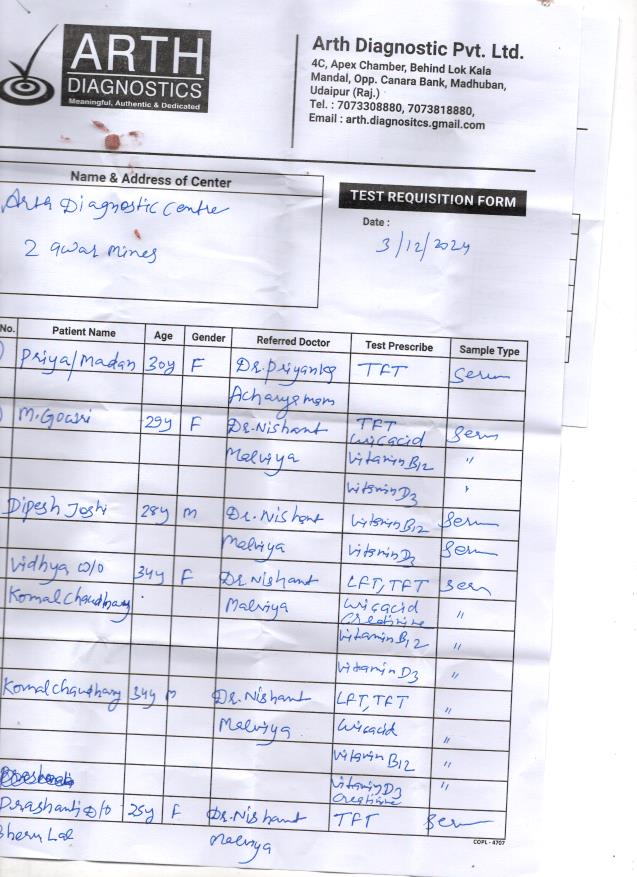 ARTH
DIAGNOSTICS
Meaningful, Authentic & Dedicated
Arth Diagnostic Pvt. Ltd.
4C, Apex Chamber, Behind Lok Kala
Mandal, Opp. Canara Bank, Madhuban,
Udaipur (Raj.)
Tel. : 7073308880, 7073818880,
Email : arth.diagnositcs.gmail.com
Name & Address of Center
Arth Diagnostic Centre
2 awar mines
TEST REQUISITION FORM
Date :
3/12/2024
No. Patient Name Age Gender Referred Doctor Test Prescribe Sample Type
Priya/Madan 30y F Dr. Priyanka TFT Serum
Acharya mam
M. Gowri 29y F Dr. Nishant TFT Serum
Uricacid
Malviya Vitamin B12 "
Vitamin D3 "
Dipesh Joshi 28y M Dr. Nishant Vitamin B12 Serum
Malviya Vitamin D3 Serum
Vidhya W/O 34y F Dr. Nishant LFT, TFT Serum
Komal Chaudhary Malviya Uricacid "
Creatinine
Vitamin B12 "
Vitamin D3 "
Komal Chaudhary 34y M Dr. Nishant LFT, TFT "
Malviya Uricacid "
Vitamin B12 "
Vitamin D3 "
Creatinine
Prashanti D/O 25y F Dr. Nishant TFT Serum
Bheru Lal Malviya
COPL - 4707